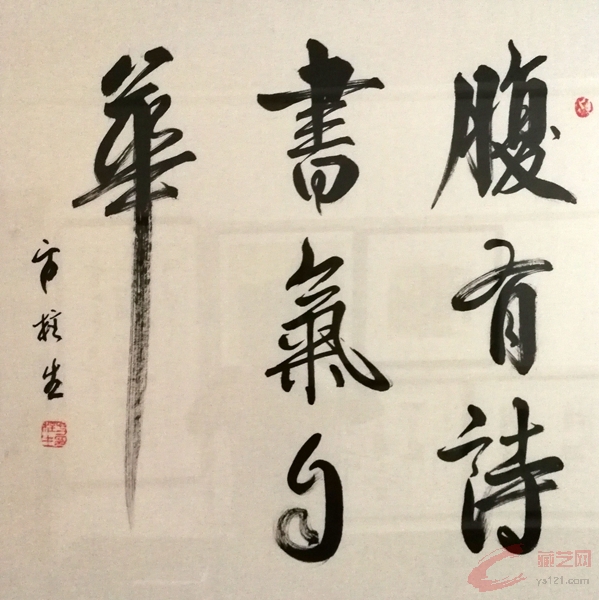 腹有詩
書氣自
華
藏艺网
ya121.com